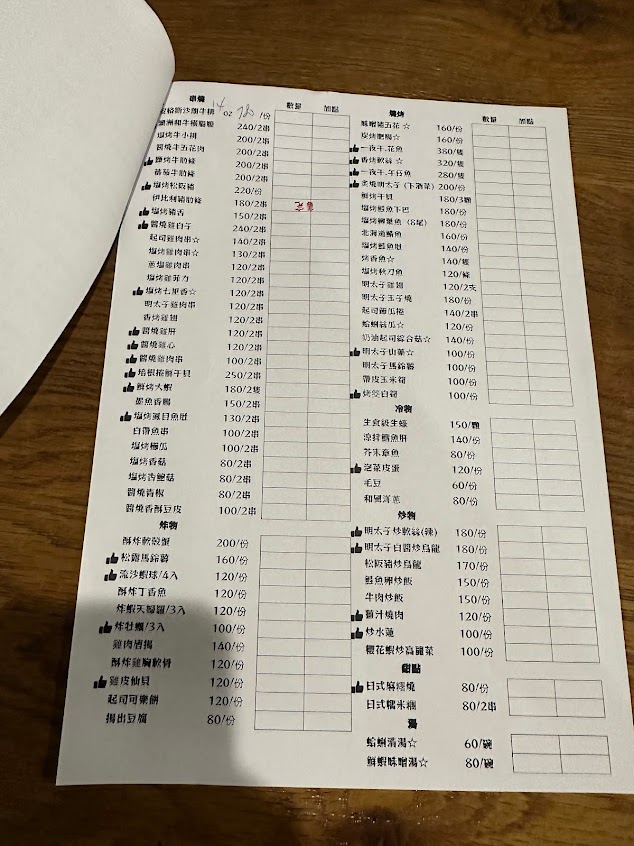 串燒 數量 加點
沙朗牛排 14 oz 780 /份
澳洲和牛橫膈膜 240/2串
塩烤牛小排 200/2串
醬燒牛五花肉 200/2串
鹽烤牛肋條 200/2串
蕃茄牛肋條 200/2串
塩烤松阪豬 220/份
伊比利豬肋條 180/2串 售完
塩烤豬香 150/2串
醬燒雞白子 240/2串
起司雞肉串☆ 140/2串
塩烤雞肉串☆ 130/2串
蔥塩雞肉串 120/2串
塩烤雞菲力 120/2串
塩烤七里香☆ 120/2串
明太子雞肉串 120/2串
香烤雞翅 120/2串
醬燒雞肝 120/2串
醬燒雞心 120/2串
醬燒雞肉串 100/2串
培根捲鮮干貝 250/2串
鮮烤大蝦 180/2隻
墨魚香腸 150/2串
塩烤虱目魚肚 130/2串
白帶魚串 100/2串
塩烤櫛瓜 100/2串
塩烤香菇 80/2串
塩烤杏鮑菇 80/2串
醬燒青椒 80/2串
醬燒香酥豆皮 100/2串
炸物
酥炸軟殼蟹 200/份
松露馬鈴薯 160/份
流沙蝦球/4入 120/份
酥炸丁香魚 120/份
炸蝦天婦羅/3入 120/份
炸牡蠣/3入 100/份
雞肉唐揚 140/份
酥炸雞胸軟骨 120/份
雞皮仙貝 120/份
起司可樂餅 120/份
揚出豆腐 80/份
燒烤 數量 加點
味噌豬五花☆ 160/份
炭烤肥腸☆ 160/份
一夜干.花魚 380/隻
香烤軟絲☆ 320/隻
一夜干.午仔魚 280/隻
炙燒明太子(下酒菜) 200/份
鮮烤干貝 180/3顆
塩烤鮭魚下巴 180/份
塩烤柳葉魚(8尾) 180/份
北海道鯖魚 160/份
塩烤鮭魚肚 140/份
烤香魚☆ 140/隻
塩烤秋刀魚 120/條
明太子雞翅 120/2支
明太子玉子燒 180/份
起司櫛瓜捲 140/2串
蛤蜊絲瓜☆ 120/份
奶油起司綜合菇☆ 140/份
明太子山藥☆ 100/份
明太子馬鈴薯 100/份
帶皮玉米筍 100/份
烤筊白筍 100/份
冷物
生食級生蠔 150/顆
涼拌鱈魚肝 140/份
芥末章魚 80/份
泡菜皮蛋 120/份
毛豆 60/份
和風洋蔥 80/份
炒物
明太子炒軟絲(辣) 180/份
明太子白醬炒烏龍 180/份
松阪豬炒烏龍 170/份
鮭魚卵炒飯 150/份
牛肉炒飯 150/份
薑汁燒肉 120/份
炒水蓮 100/份
櫻花蝦炒高麗菜 100/份
甜點
日式麻糬燒 80/份
日式糯米糰 80/2串
湯
蛤蜊清湯☆ 60/碗
鮮蝦味噌湯☆ 80/碗